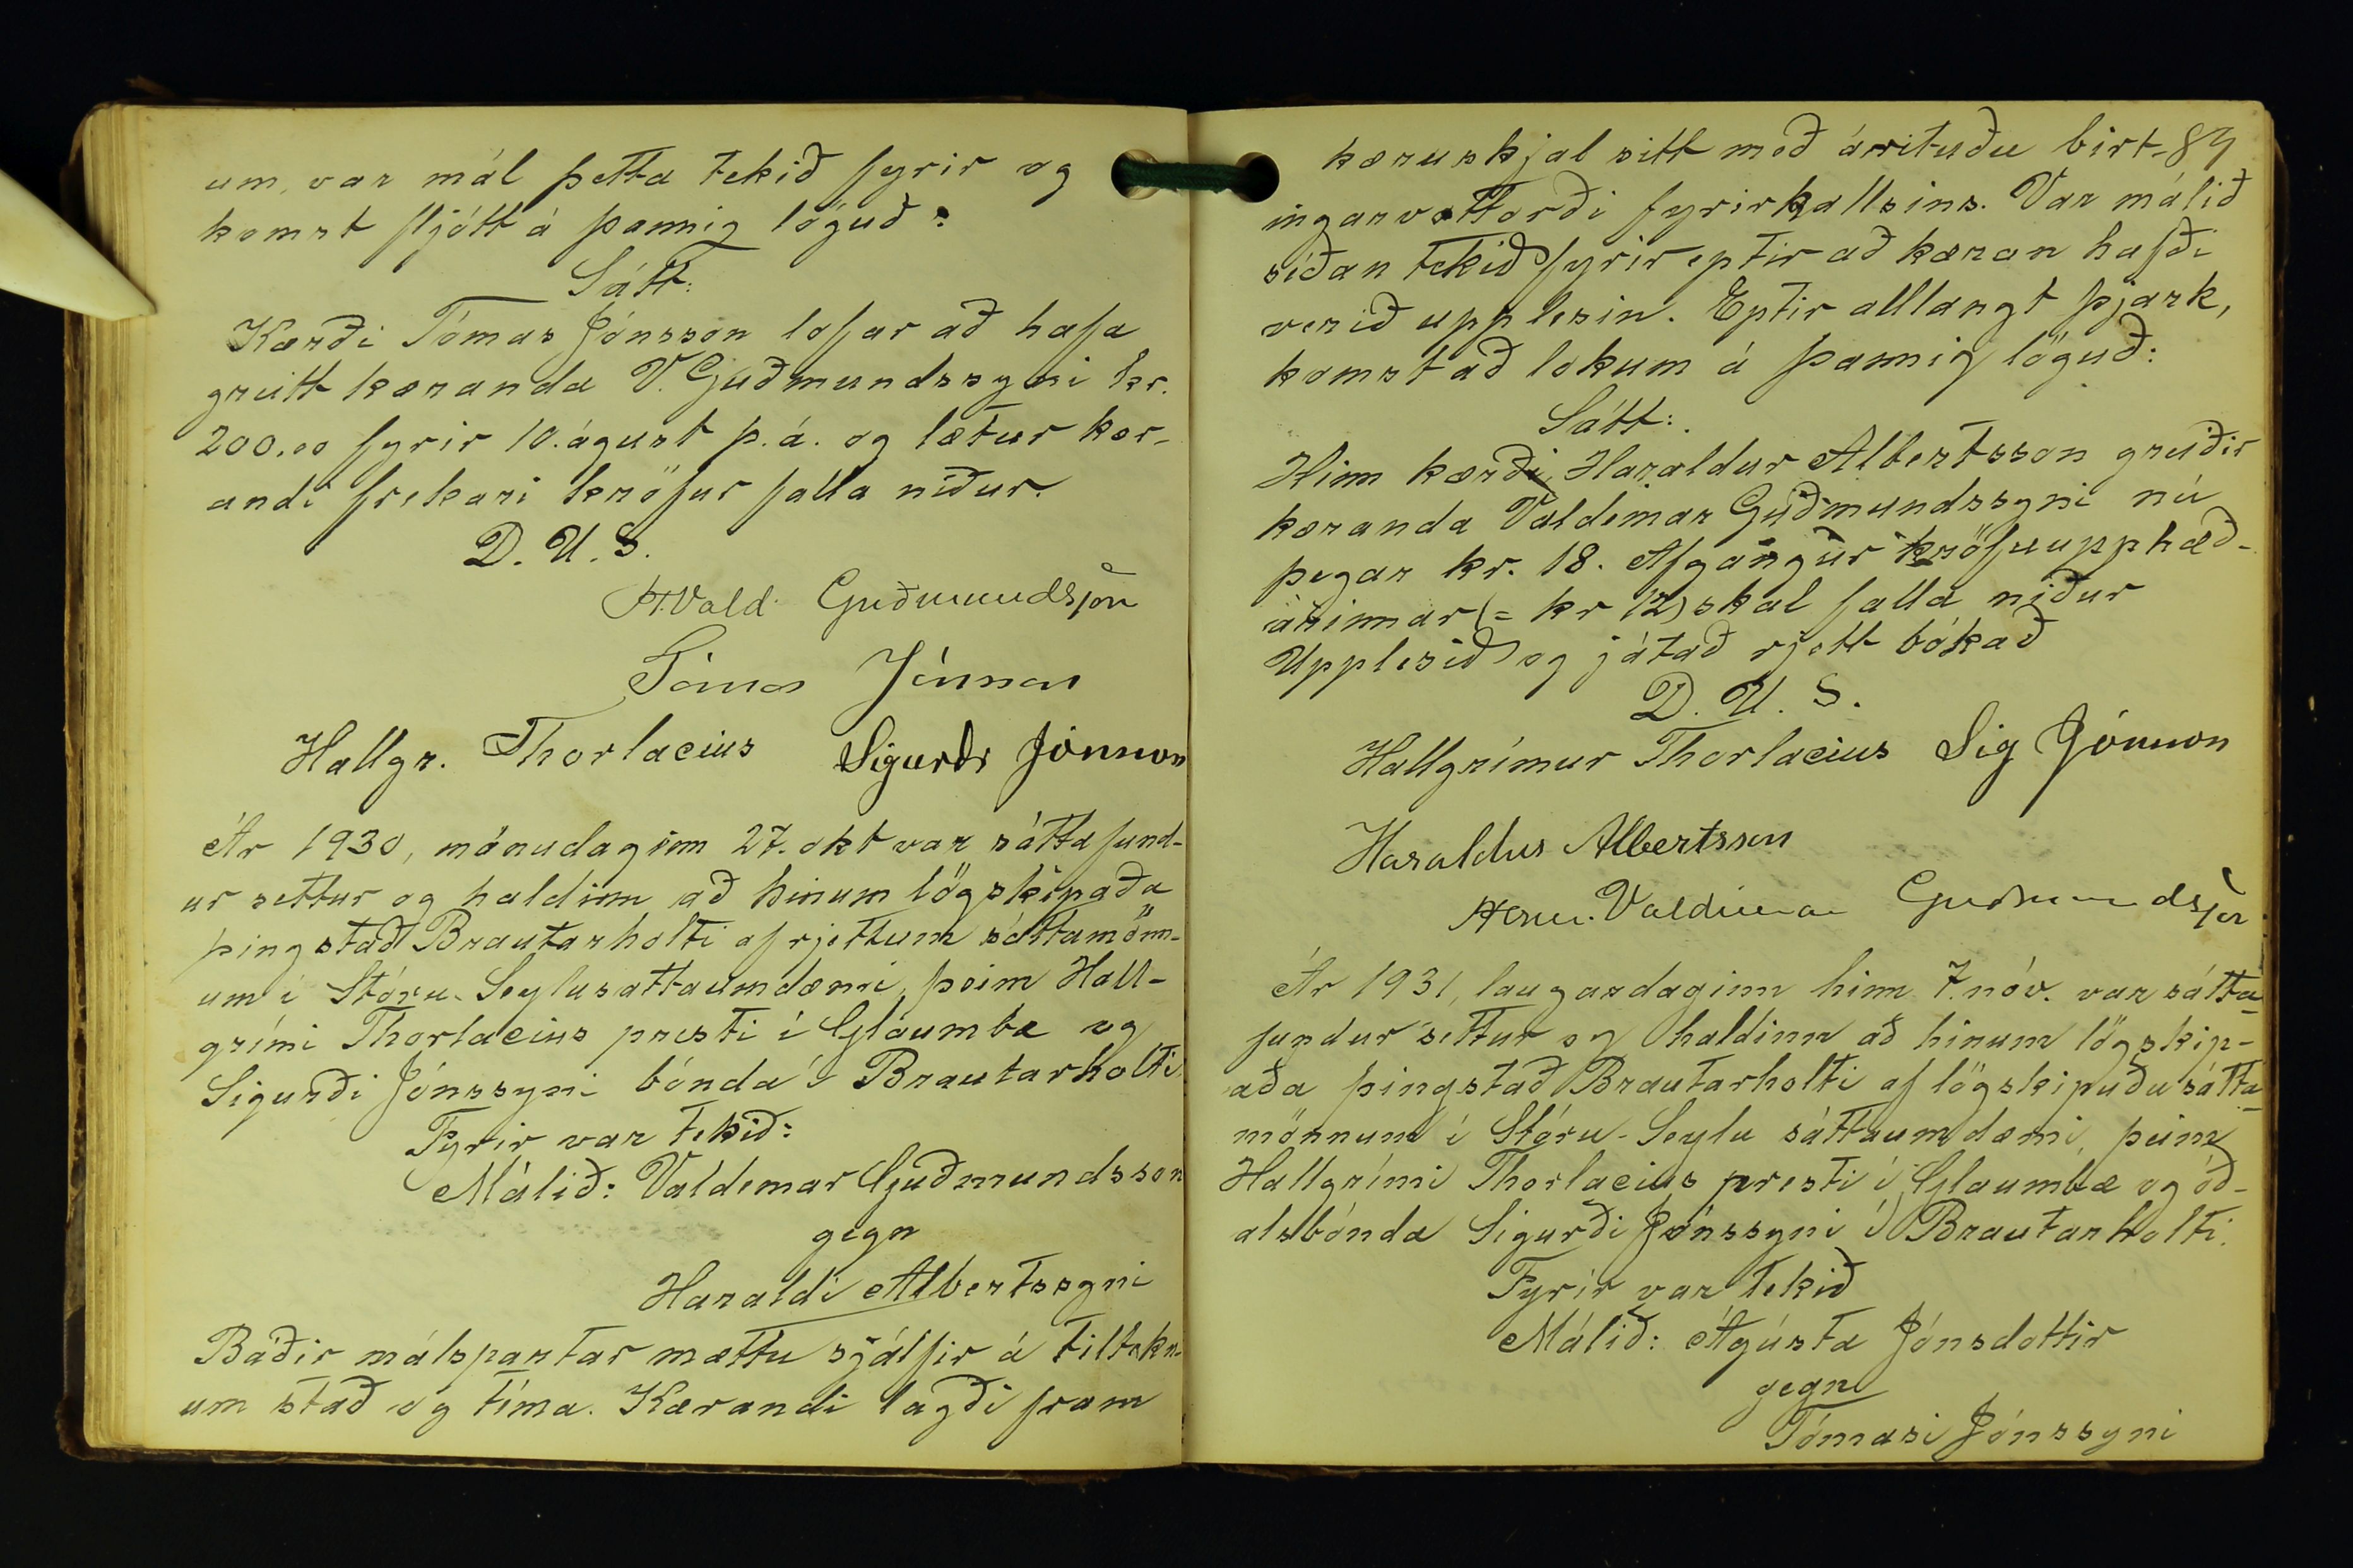 um, var mál þetta tekið fyrir og
komst fljótt á þannig löguð:
Sátt:
Kærði Tómas Jónsson lofar að hafa
greitt kæranda V. Guðmundssyni kr.
200.00 fyrir 10. ágúst þ.á. og lætur kær-
andi frekari kröfur falla niður.
D. U. S.
H. Vald. Guðmundsson
Tómas Jónsson
Hallgr. Thorlacius Sigurðr Jónsson
Ár 1930, mánudaginn 27. okt var sáttafund-
ur settur og haldinn að hinum lögskipaða
þingstað Brautarholti af rjettum sáttamönn-
um í Stóru-Seylusáttaumdæmi, þeim Hall-
grími Thorlacius presti í Glaumbæ og
Sigurði Jónssyni bónda í Brautarholti.
Fyrir var tekið:
Málið: Valdemar Guðmundsson
gegn
Haraldi Albertssyni
Báðir málspartar mættu sjálfir á tiltekn-
um stað og tíma. Kærandi lagði fram
89
kæruskjal sitt með árrituðu birt-
ingarvottorði fyrirkallsins. Var málið
síðan tekið fyrir eptir að kæran hafði
verið upplesin. Eptir alllangt þjark,
komst að lokum á þannig löguð:
Sátt:
Hinn kærði, Haraldur Albertsson greiðir
kæranda Valdimar Guðmundssyni nú
þegar kr. 18. Afgangur kröfuupphæð-
arinnar (= kr 12) skal falla niður
Upplesið og játað rjett bókað
D. U. S.
Hallgrímur Thorlacius Sig Jónsson
Haraldur Albertsson
Herm. Valdimar Guðmundsson
Ár 1931, laugardaginn hinn 7. nóv. var sátta-
fundur settur og haldinn að hinum lögskip-
aða þingstað Brautarholti af lögskipuðu sátta-
mönnum í Stóru-Seylu sáttaumdæmi, þeim
Hallgrími Thorlacius presti í Glaumbæ og óð-
alsbónda Sigurði Jónssyni í Brautarholti.
Fyrir var tekið
Málið: Ágústa Jónsdottir
gegn
Tómasi Jónssyni